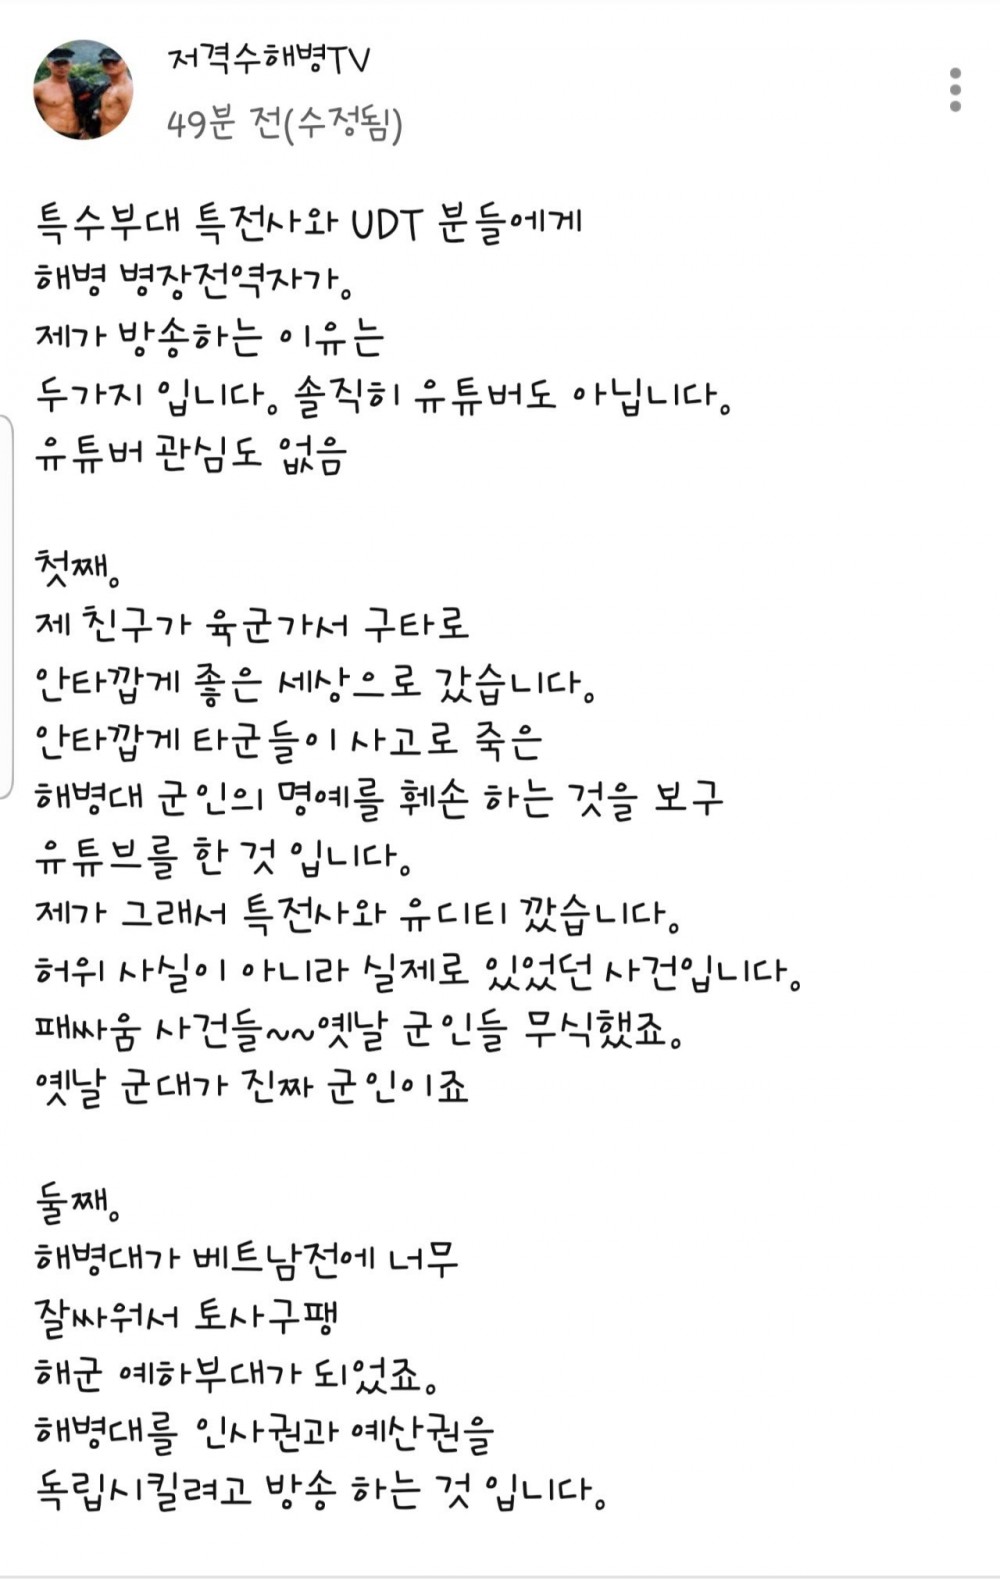 저격수해병TV
49분 전(수정됨)
특수부대 특전사와 UDT 분들에게
해병 병장전역자가.
제가 방송하는 이유는
두가지 입니다. 솔직히 유튜버도 아닙니다.
유튜버 관심도 없음
첫째.
제 친구가 육군가서 구타로
안타깝게 좋은 세상으로 갔습니다.
안타깝게 타군들이 사고로 죽은
해병대 군인의 명예를 훼손 하는 것을 보구
유튜브를 한 것 입니다.
제가 그래서 특전사와 유디티 깠습니다.
허위 사실이 아니라 실제로 있었던 사건입니다.
패싸움 사건들~~옛날 군인들 무식했죠.
옛날 군대가 진짜 군인이죠
둘째.
해병대가 베트남전에 너무
잘싸워서 토사구팽
해군 예하부대가 되었죠.
해병대를 인사권과 예산권을
독립시킬려고 방송 하는 것 입니다.